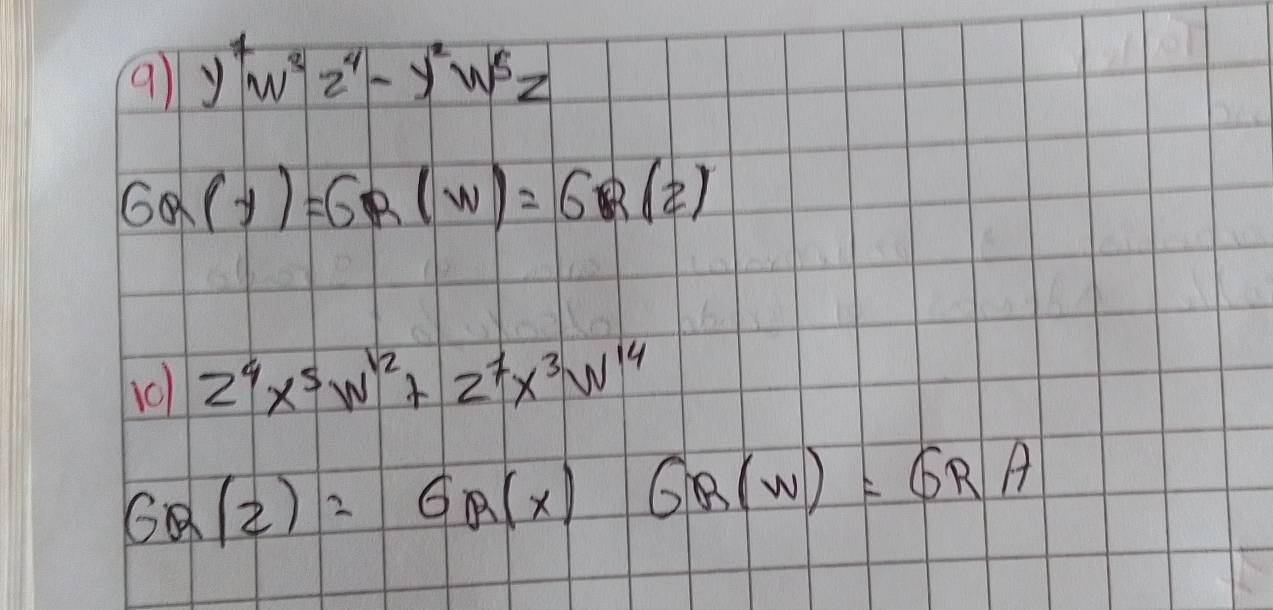 9) y⁷w³z⁴ - y²w⁵z
GR(y) = GR(w) = GR(z)
10) z⁹x⁵w¹² + z⁷x³w¹⁴
GR(z) = GR(x) GR(w) = GR A